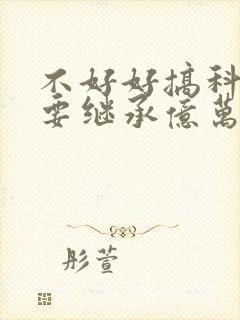 不好好搞科
要继承億萬
彤萱